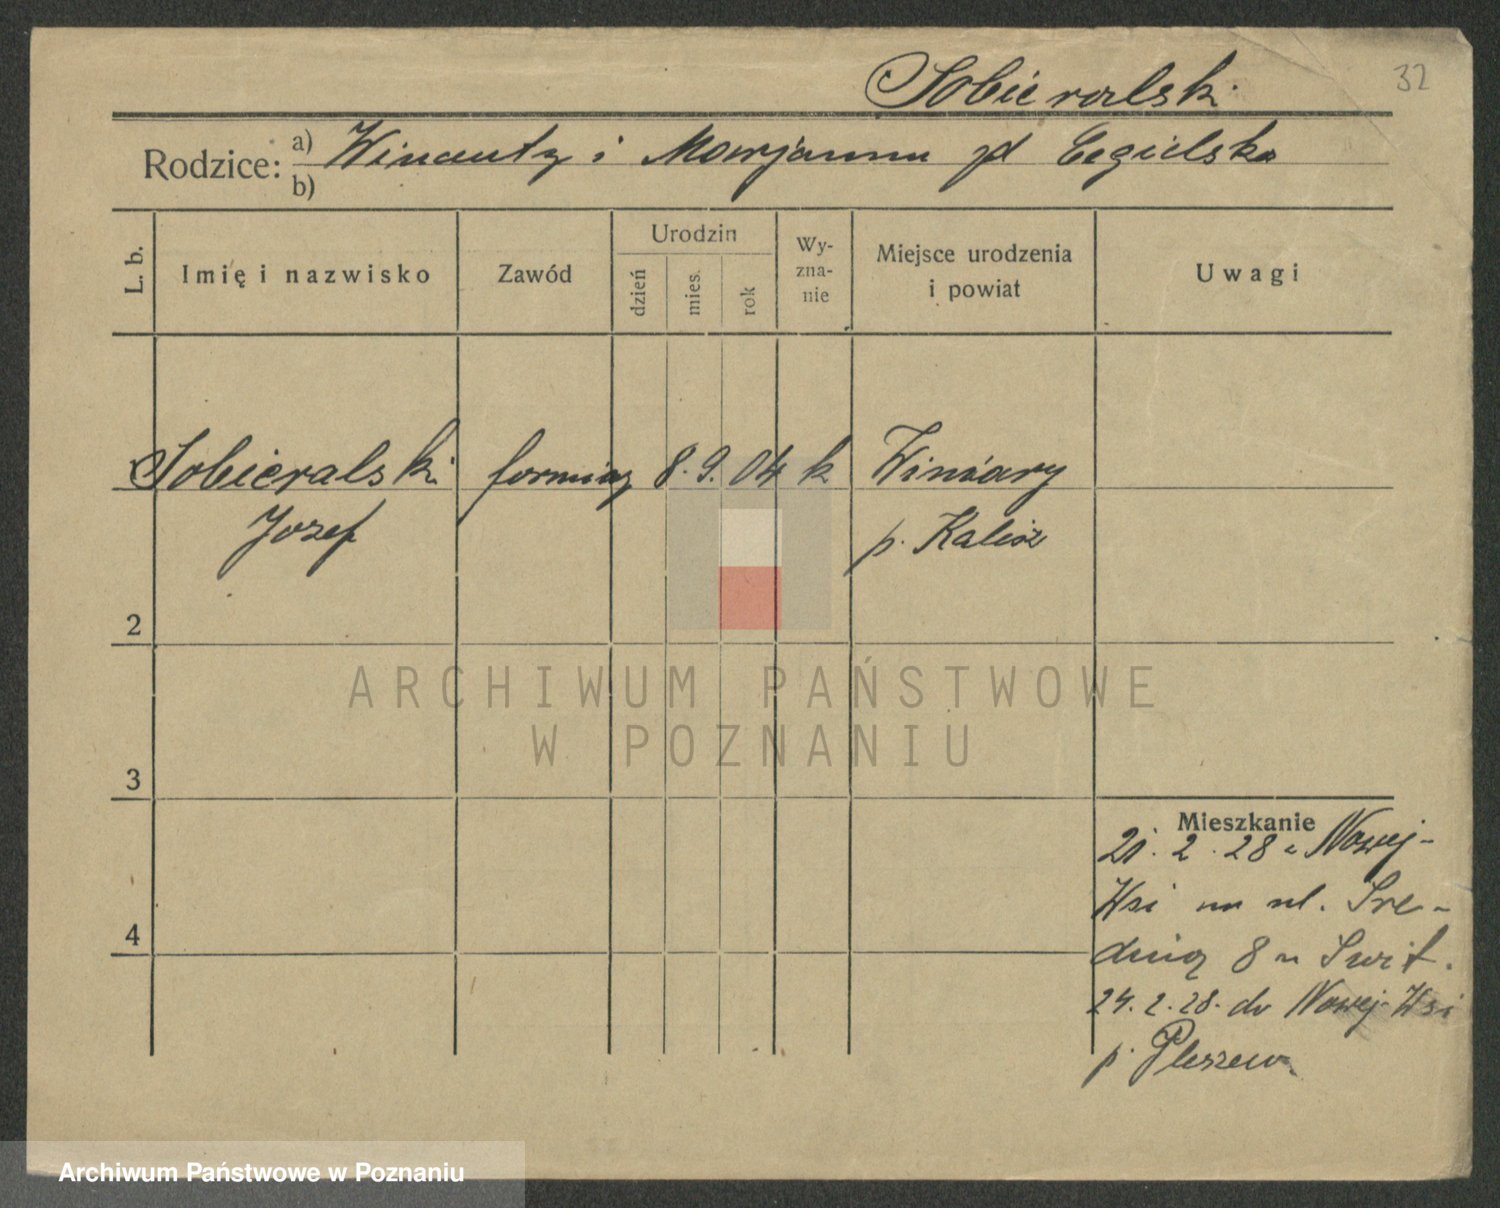 Sobieralski
32
Rodzice: a) Wincenty i Marjanna zd Cegielska
b)
L. b.
Imię i nazwisko
Zawód
Urodzin
dzień
mies.
rok
Wy-
zna-
nie
Miejsce urodzenia
i powiat
Uwagi
Sobieralski
Jozef
8. 9. 04 k
Winiary
p. Kalisz
2
3
4
ARCHIWUM PAŃSTWOWE
W POZNANIU
Mieszkanie
21. 2. 28 z Nowej-
Wsi na ul. Sre-
dnią 8 u Swit.
24. 2. 28. do Nowej-Wsi
p. Pleszew.
Archiwum Państwowe w Poznaniu